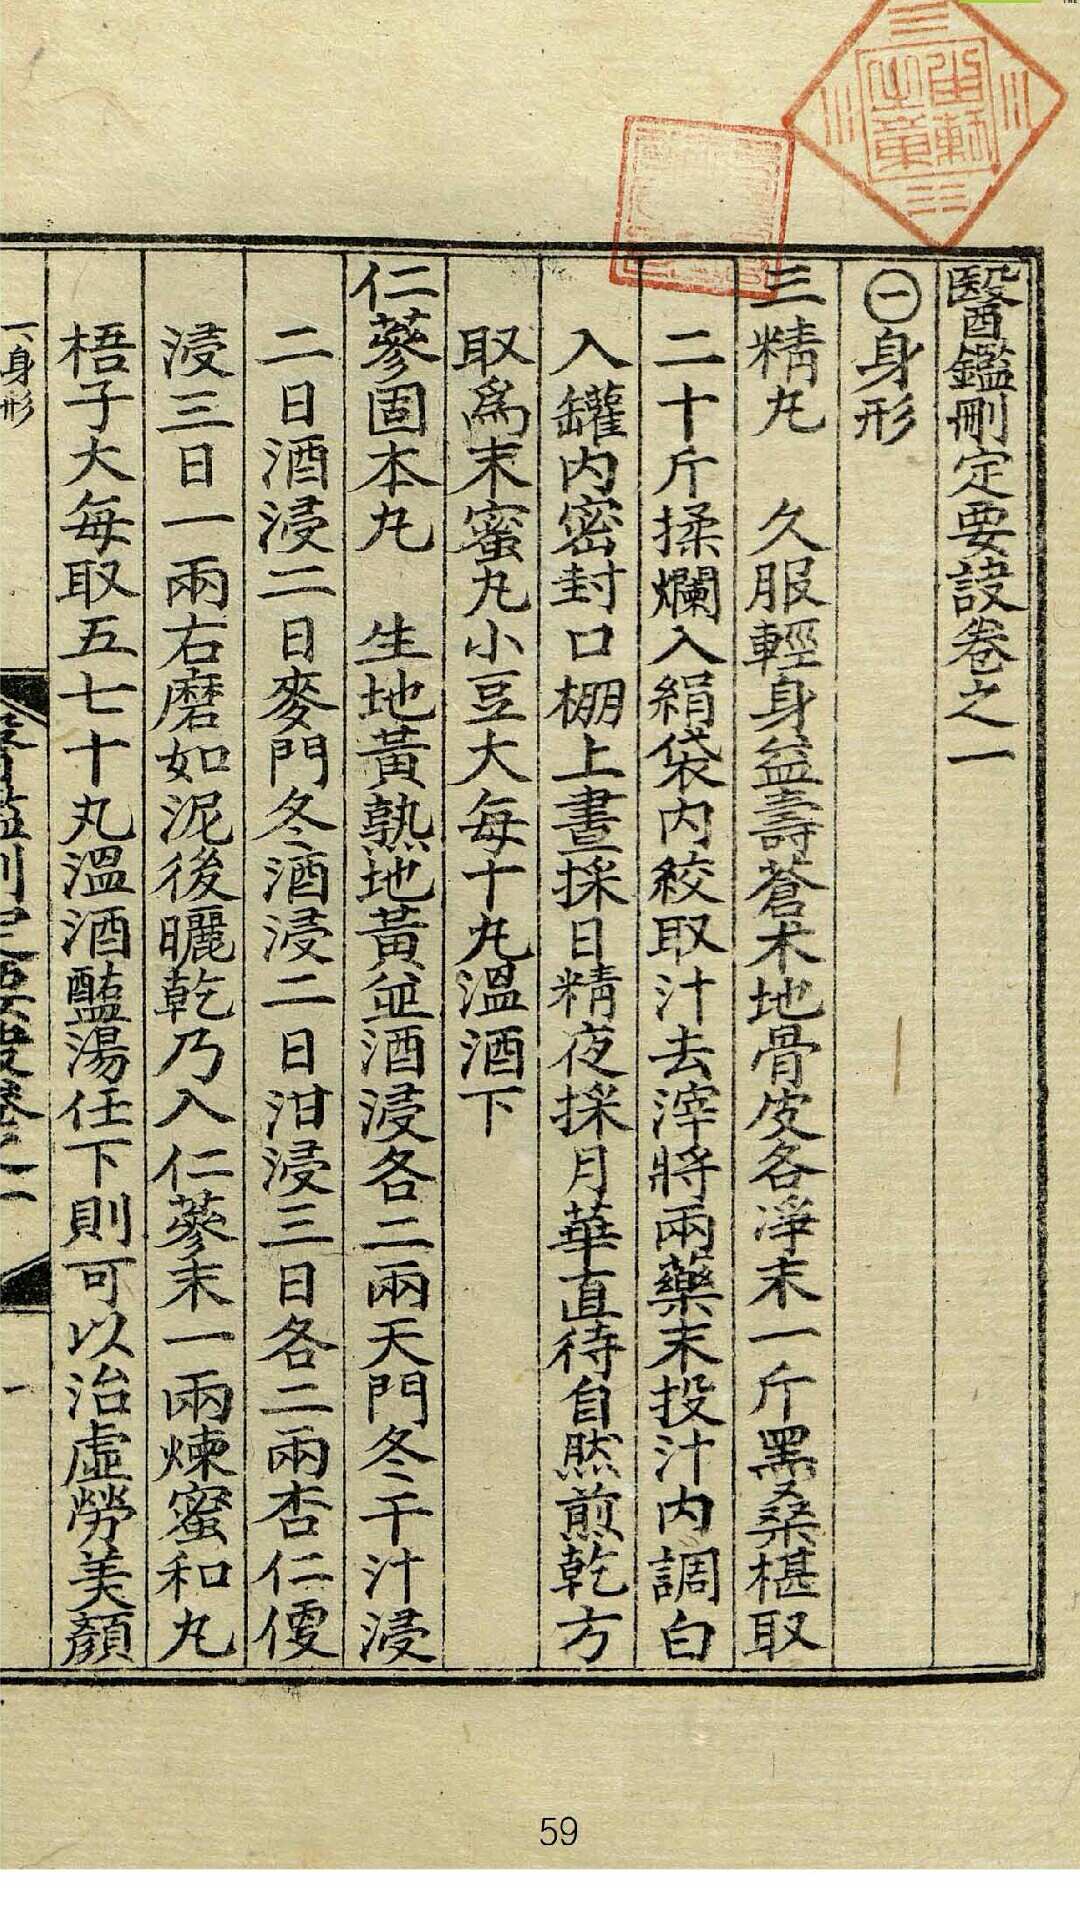 醫鑑刪定要訣卷之一
㊀身形
三精丸 久服輕身益壽蒼朮地骨皮各淨末一斤黑桑椹取
二十斤揉爛入絹袋內絞取汁去滓將兩藥末投汁內調白
入罐內密封口棚上晝採日精夜採月華直待自然煎乾方
取爲末蜜丸小豆大每十丸溫酒下
仁蔘固本丸 生地黃熟地黃並酒浸各二兩天門冬干汁浸
二日酒浸二日麥門冬酒浸二日泔浸三日各二兩杏仁
浸三日一兩右磨如泥後曬乾乃入仁蔘末一兩煉蜜和丸
梧子大每取五七十丸溫酒鹽湯任下則可以治虛勞美顏
一身形
一
59